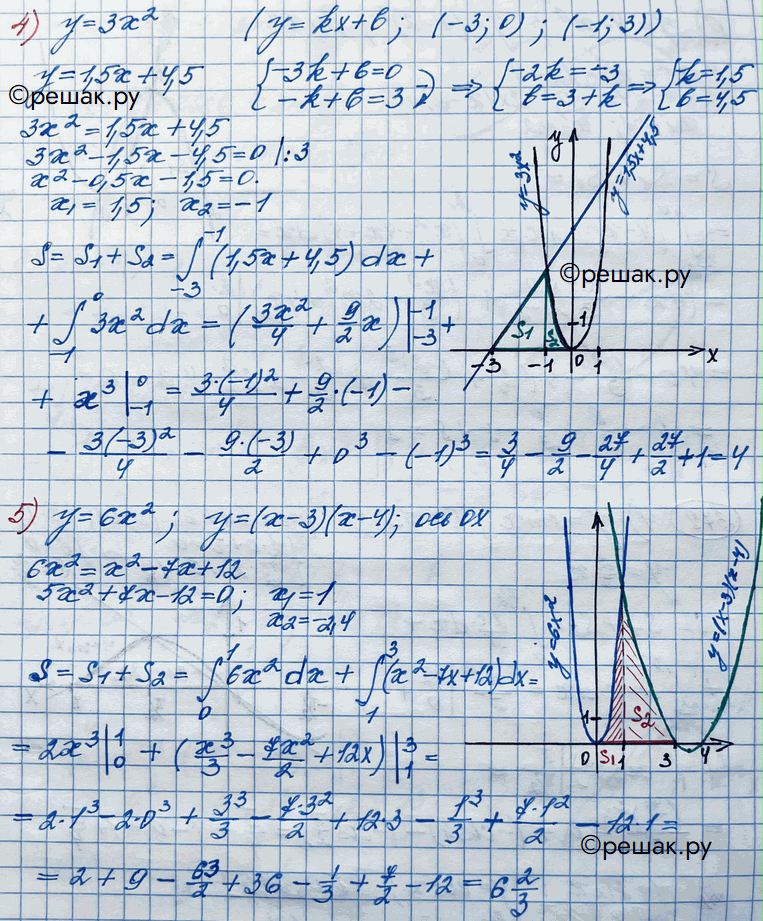 4) y=3x²   (y=kx+b; (-3;0); (-1;3))
y=1,5x+4,5   {-3k+b=0 {-k+b=3 ) ⇒ {-2k=-3 {b=3+k ⇒ {k=1,5 {b=4,5
©решак.ру
3x²=1,5x+4,5
3x²-1,5x-4,5=0 |:3
x²-0,5x-1,5=0.
x₁=1,5; x₂=-1
S=S₁+S₂=∫₋₃⁻¹(1,5x+4,5)dx+
+∫₋₁⁰3x²dx=(3x²/4+9/2x)|₋₃⁻¹+
+x³|₋₁⁰=3·(-1)²/4+9/2·(-1)-
-3(-3)²/4-9·(-3)/2+0³-(-1)³=3/4-9/2-27/4+27/2+1=4
y
y=3x²
y=1,5x+4,5
©решак.ру
1
S₁ S₂
-3 -1 0 1 x
5) y=6x²; y=(x-3)(x-4); ось OX
6x²=x²-7x+12
5x²+7x-12=0; x₁=1
x₂=-2,4
S=S₁+S₂=∫₀¹6x²dx+∫₁³(x²-7x+12)dx=
=2x³|₀¹+(x³/3-7x²/2+12x)|₁³=
=2·1³-2·0³+3³/3-7·3²/2+12·3-1³/3+7·1²/2-12·1=
=2+9-63/2+36-1/3+7/2-12=6 2/3
y=6x²
y=(x-3)(x-4)
1
S₂
0 S₁ 1 3 4
©решак.ру